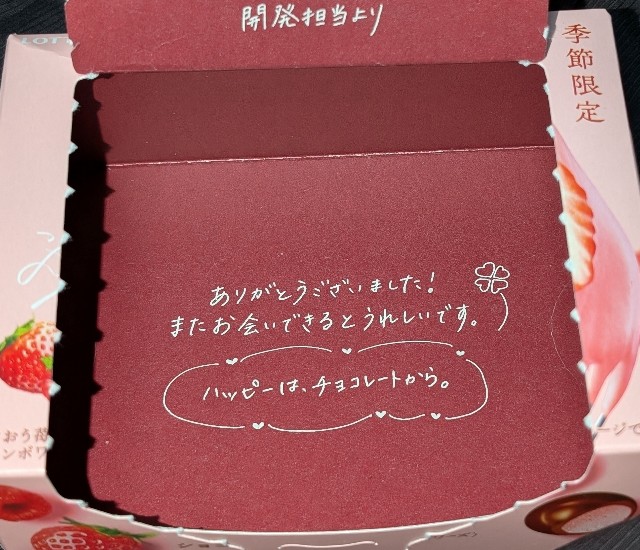 開発担当より
LOTT
季節限定
ありがとうございました!
またお会いできるとうれしいです。
ハッピーは、チョコレートから。
おう苺
ンボワ
ージで
ショコ
ーズ〉